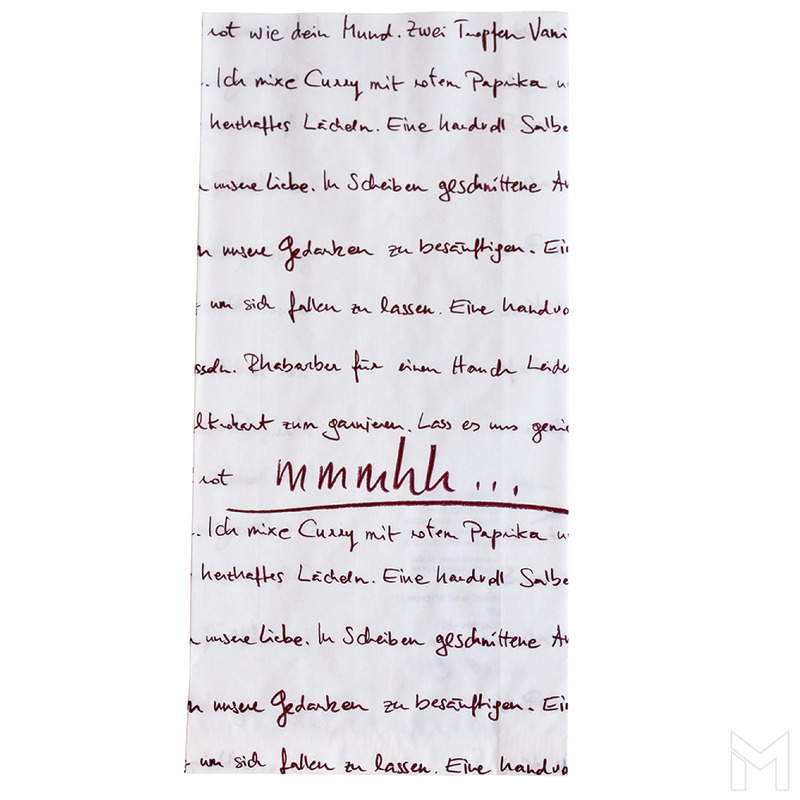 rot wie dein Mund. Zwei Tropfen Vani
. Ich mixe Curry mit rotem Paprika u
herzhaftes Lächeln. Eine handvoll Salbe
unsere Liebe. In Scheiben geschnittene
n unsere Gedanken zu besänftigen. Ein
um sich fallen zu lassen. Eine handvo
sseln. Rhabarber für einen Hauch Leide
zum garnieren. Lass es uns genie
rot mmmhh...
. Ich mixe Curry mit rotem Paprika u
herzhaftes Lächeln. Eine handvoll Salbe
unsere Liebe. In Scheiben geschnittene
n unsere Gedanken zu besänftigen. Ein
um sich fallen zu lassen. Eine handvo
M